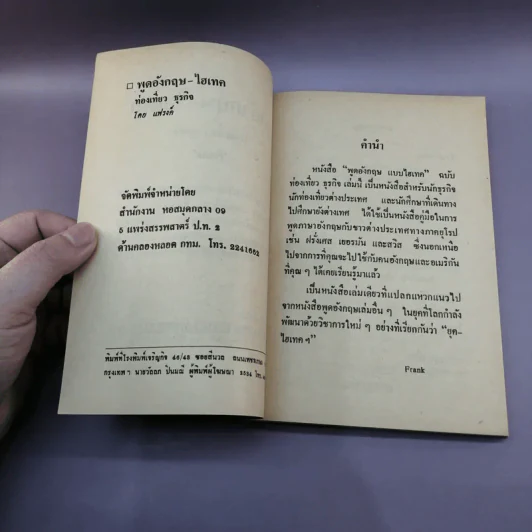 □ พูดอังกฤษ-ไฮเทค
ท่องเที่ยว ธุรกิจ
โดย แฟรงค์
จัดพิมพ์จำหน่ายโดย
สำนักงาน หอสมุดกลาง 09
5 แพร่งสรรพสาตร์ ป.ท. 2
ด้านคลองหลอด กทม. โทร. 2241662
พิมพ์ที่โรงพิมพ์เจริญกิจ 46/48 ซอยสีนวล ถนน
กรุงเทพฯ นายวัลลภ ปิ่นมณี ผู้พิมพ์ผู้โฆษณา 2534 โทร.
คำนำ
หนังสือ "พูดอังกฤษ แบบไฮเทค" ฉบับ
ท่องเที่ยว ธุรกิจ เล่มนี้ เป็นหนังสือสำหรับนักธุรกิจ
นักท่องเที่ยวต่างประเทศ และนักศึกษาที่เดินทาง
ไปศึกษายังต่างประเทศ ได้ใช้เป็นหนังสือคู่มือในการ
พูดภาษาอังกฤษกับชาวต่างประเทศทางภาคยุโรป
เช่น ฝรั่งเศส เยอรมัน และสวิส ซึ่งนอกเหนือ
ไปจากการที่คุณจะไปใช้กับคนอังกฤษและอเมริกัน
ที่คุณ ๆ ได้เคยเรียนรู้มาแล้ว
เป็นหนังสือเล่มเดียวที่แปลกแหวกแนวไป
จากหนังสือพูดอังกฤษเล่มอื่น ๆ ในยุคที่โลกกำลัง
พัฒนาด้วยวิชาการใหม่ ๆ อย่างที่เรียกกันว่า "ยุค-
ไฮเทค ๆ"
Frank